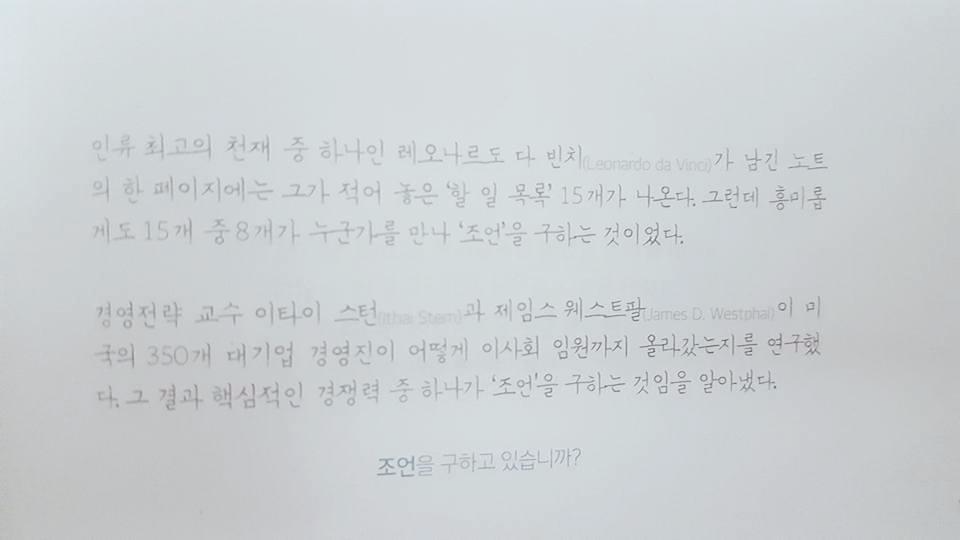 인류 최고의 천재 중 하나인 레오나르도 다 빈치(Leonardo da Vinci)가 남긴 노트
의 한 페이지에는 그가 적어 놓은 '할 일 목록' 15개가 나온다. 그런데 흥미롭
게도 15개 중 8개가 누군가를 만나 '조언'을 구하는 것이었다.
경영전략 교수 이타이 스턴(Ithai Stern)과 제임스 웨스트팔(James D. Westphal)이 미
국의 350개 대기업 경영진이 어떻게 이사회 임원까지 올라갔는지를 연구했
다. 그 결과 핵심적인 경쟁력 중 하나가 '조언'을 구하는 것임을 알아냈다.
조언을 구하고 있습니까?